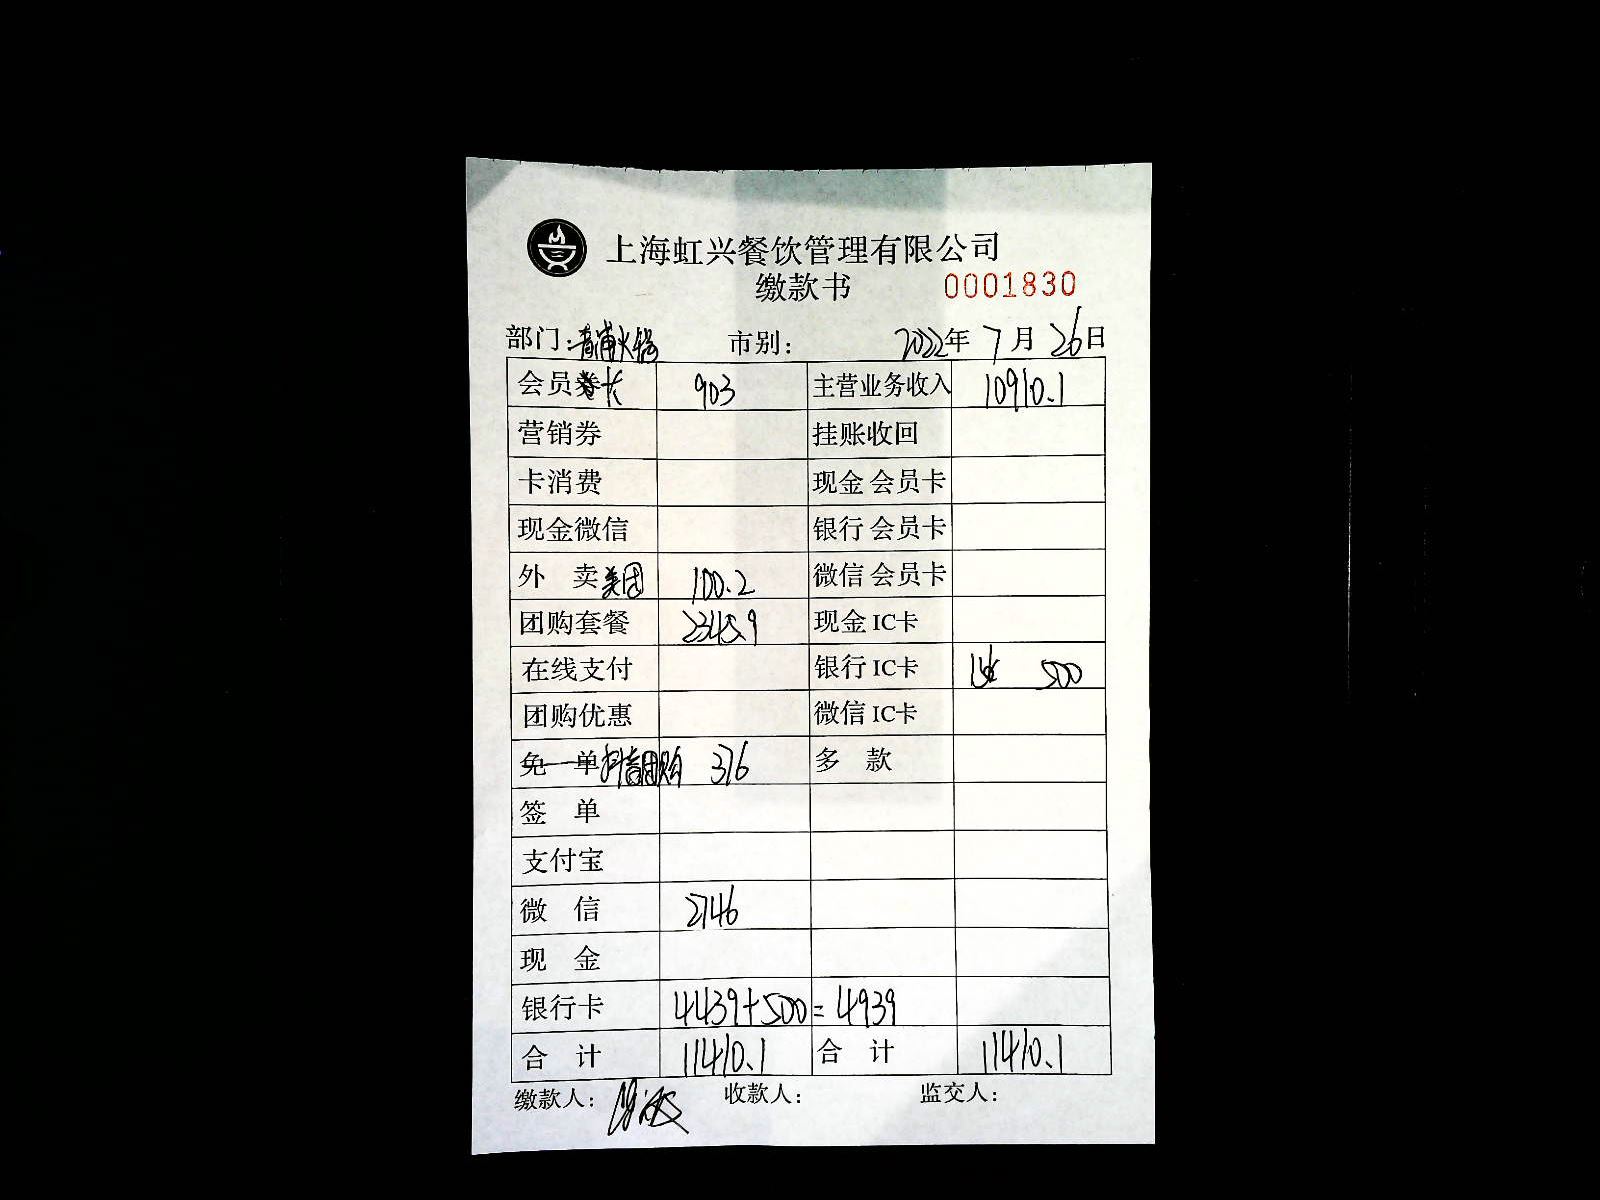 上海虹兴餐饮管理有限公司
缴款书 0001830
部门:青浦火锅 市别: 2022年 7月 26日
会员卡 903 主营业务收入 10910.1
营销券 挂账收回
卡消费 现金 会员卡
现金微信 银行 会员卡
外 卖美团 100.2 微信 会员卡
团购套餐 2345.9 现金 IC卡
在线支付 银行 IC卡 500
团购优惠 微信 IC卡
免 单抖音团购 376 多 款
签 单
支付宝
微 信 2746
现 金
银行卡 4439+500=4939
合 计 11410.1 合 计 11410.1
缴款人: 收款人: 监交人: